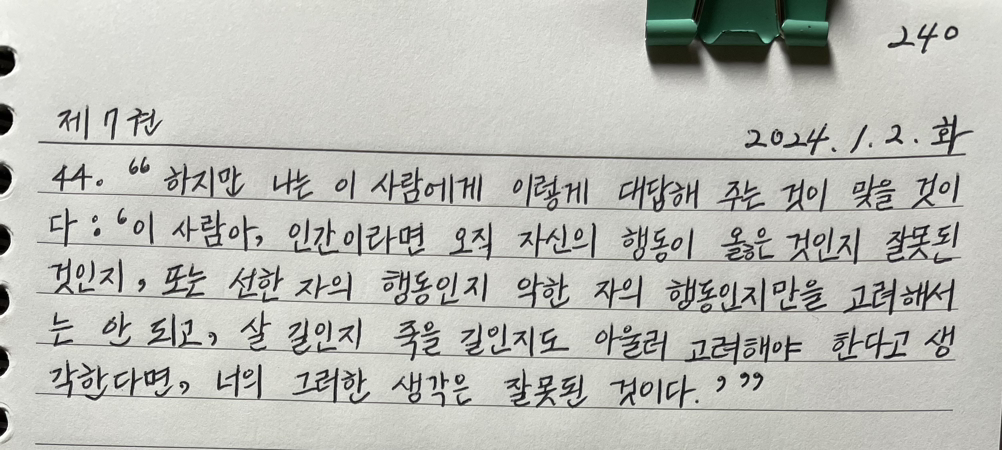 240
제7권
2024. 1. 2. 화
44. “하지만 나는 이 사람에게 이렇게 대답해 주는 것이 맞을 것이
다 : ‘이 사람아, 인간이라면 오직 자신의 행동이 옳은 것인지 잘못된
것인지, 또는 선한 자의 행동인지 악한 자의 행동인지만을 고려해서
는 안 되고, 살 길인지 죽을 길인지도 아울러 고려해야 한다고 생
각한다면, 너의 그러한 생각은 잘못된 것이다.’”